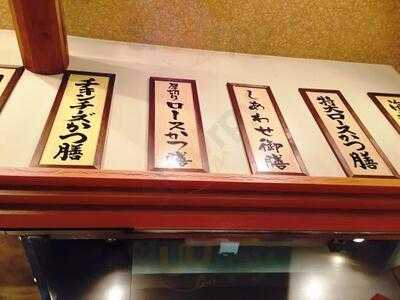 チキンチーズかつ膳
厚切りロースかつ膳
しあわせ御膳
特大ロースかつ膳
海